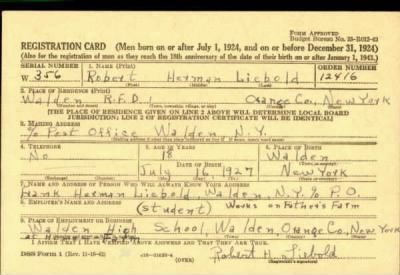 FORM APPROVED
REGISTRATION CARD (Men born on or after July 1, 1924, and on or before December 31, 1924)
(Also for the registration of men as they reach the 18th anniversary of the date of their birth on or after January 1, 1943.)
SERIAL NUMBER 1. NAME (Print) ORDER NUMBER
W 356 Robert Herman Liebold 12416
2. PLACE OF RESIDENCE (Print)
Walden R.F.D. 1 Orange Co, New York
[THE PLACE OF RESIDENCE GIVEN ON LINE 2 ABOVE WILL DETERMINE LOCAL BOARD
JURISDICTION; LINE 2 OF REGISTRATION CERTIFICATE WILL BE IDENTICAL]
3. MAILING ADDRESS
% Post Office Walden, N.Y.
4. TELEPHONE 5. AGE IN YEARS 6. PLACE OF BIRTH
No 18 Walden
DATE OF BIRTH
July 16 1927 New York
7. NAME AND ADDRESS OF PERSON WHO WILL ALWAYS KNOW YOUR ADDRESS
Frank Herman Liebold, Walden, N.Y. % P.O.
8. EMPLOYER'S NAME AND ADDRESS
(student) Works on Father's Farm
9. PLACE OF EMPLOYMENT OR BUSINESS
Walden High School, Walden, Orange Co, New York
I AFFIRM THAT I HAVE VERIFIED ABOVE ANSWERS AND THAT THEY ARE TRUE.
DSS Form 1 (Rev. 11-16-42) (OVER) Robert H. Liebold
(Registrant's signature)